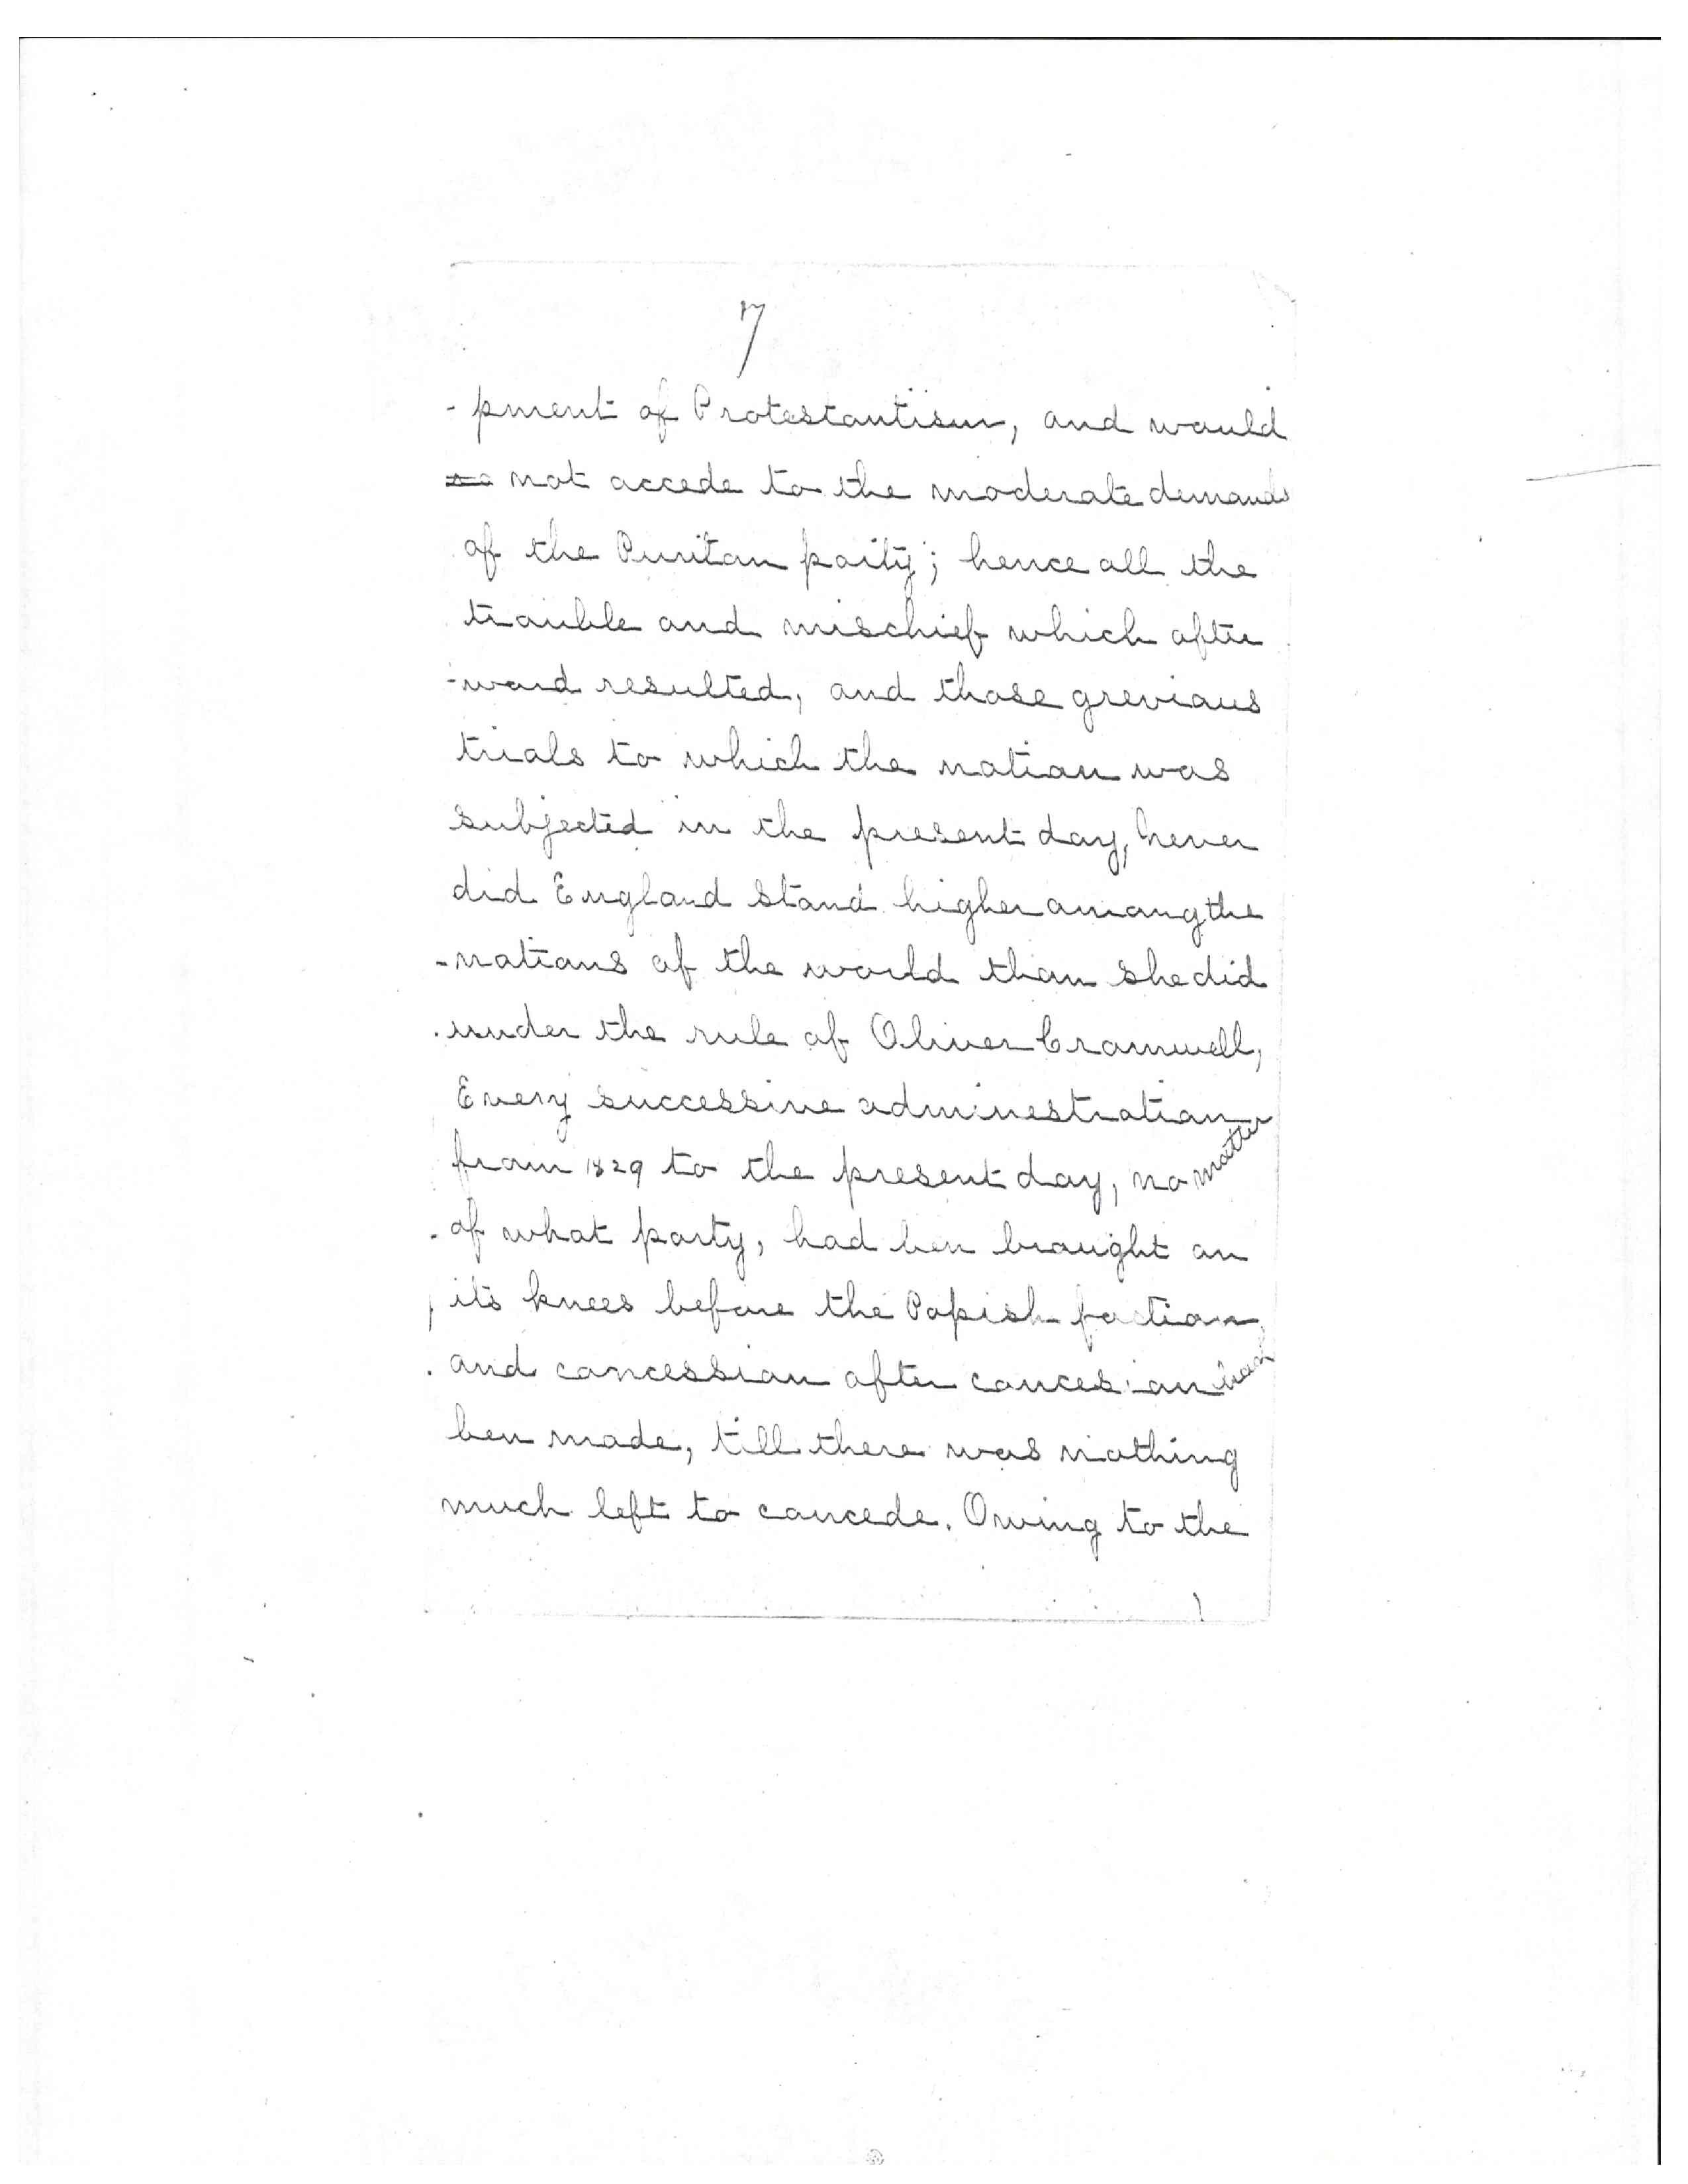 7
- pment of Protestantism, and would
not accede to the moderate demands
of the Puritan party; hence all the
trouble and mischief which after
-ward resulted, and those grevious
trials to which the nation was
subjected in the present day, never
did England stand higher among the
nations of the world than she did
under the rule of Oliver Cromwell,
Every successive adminestration
from 1829 to the present day, no matter
of what party, had ben brought on
its knees before the Popish faction,
and concession after concession had
ben made, till there was nothing
much left to concede. Owing to the